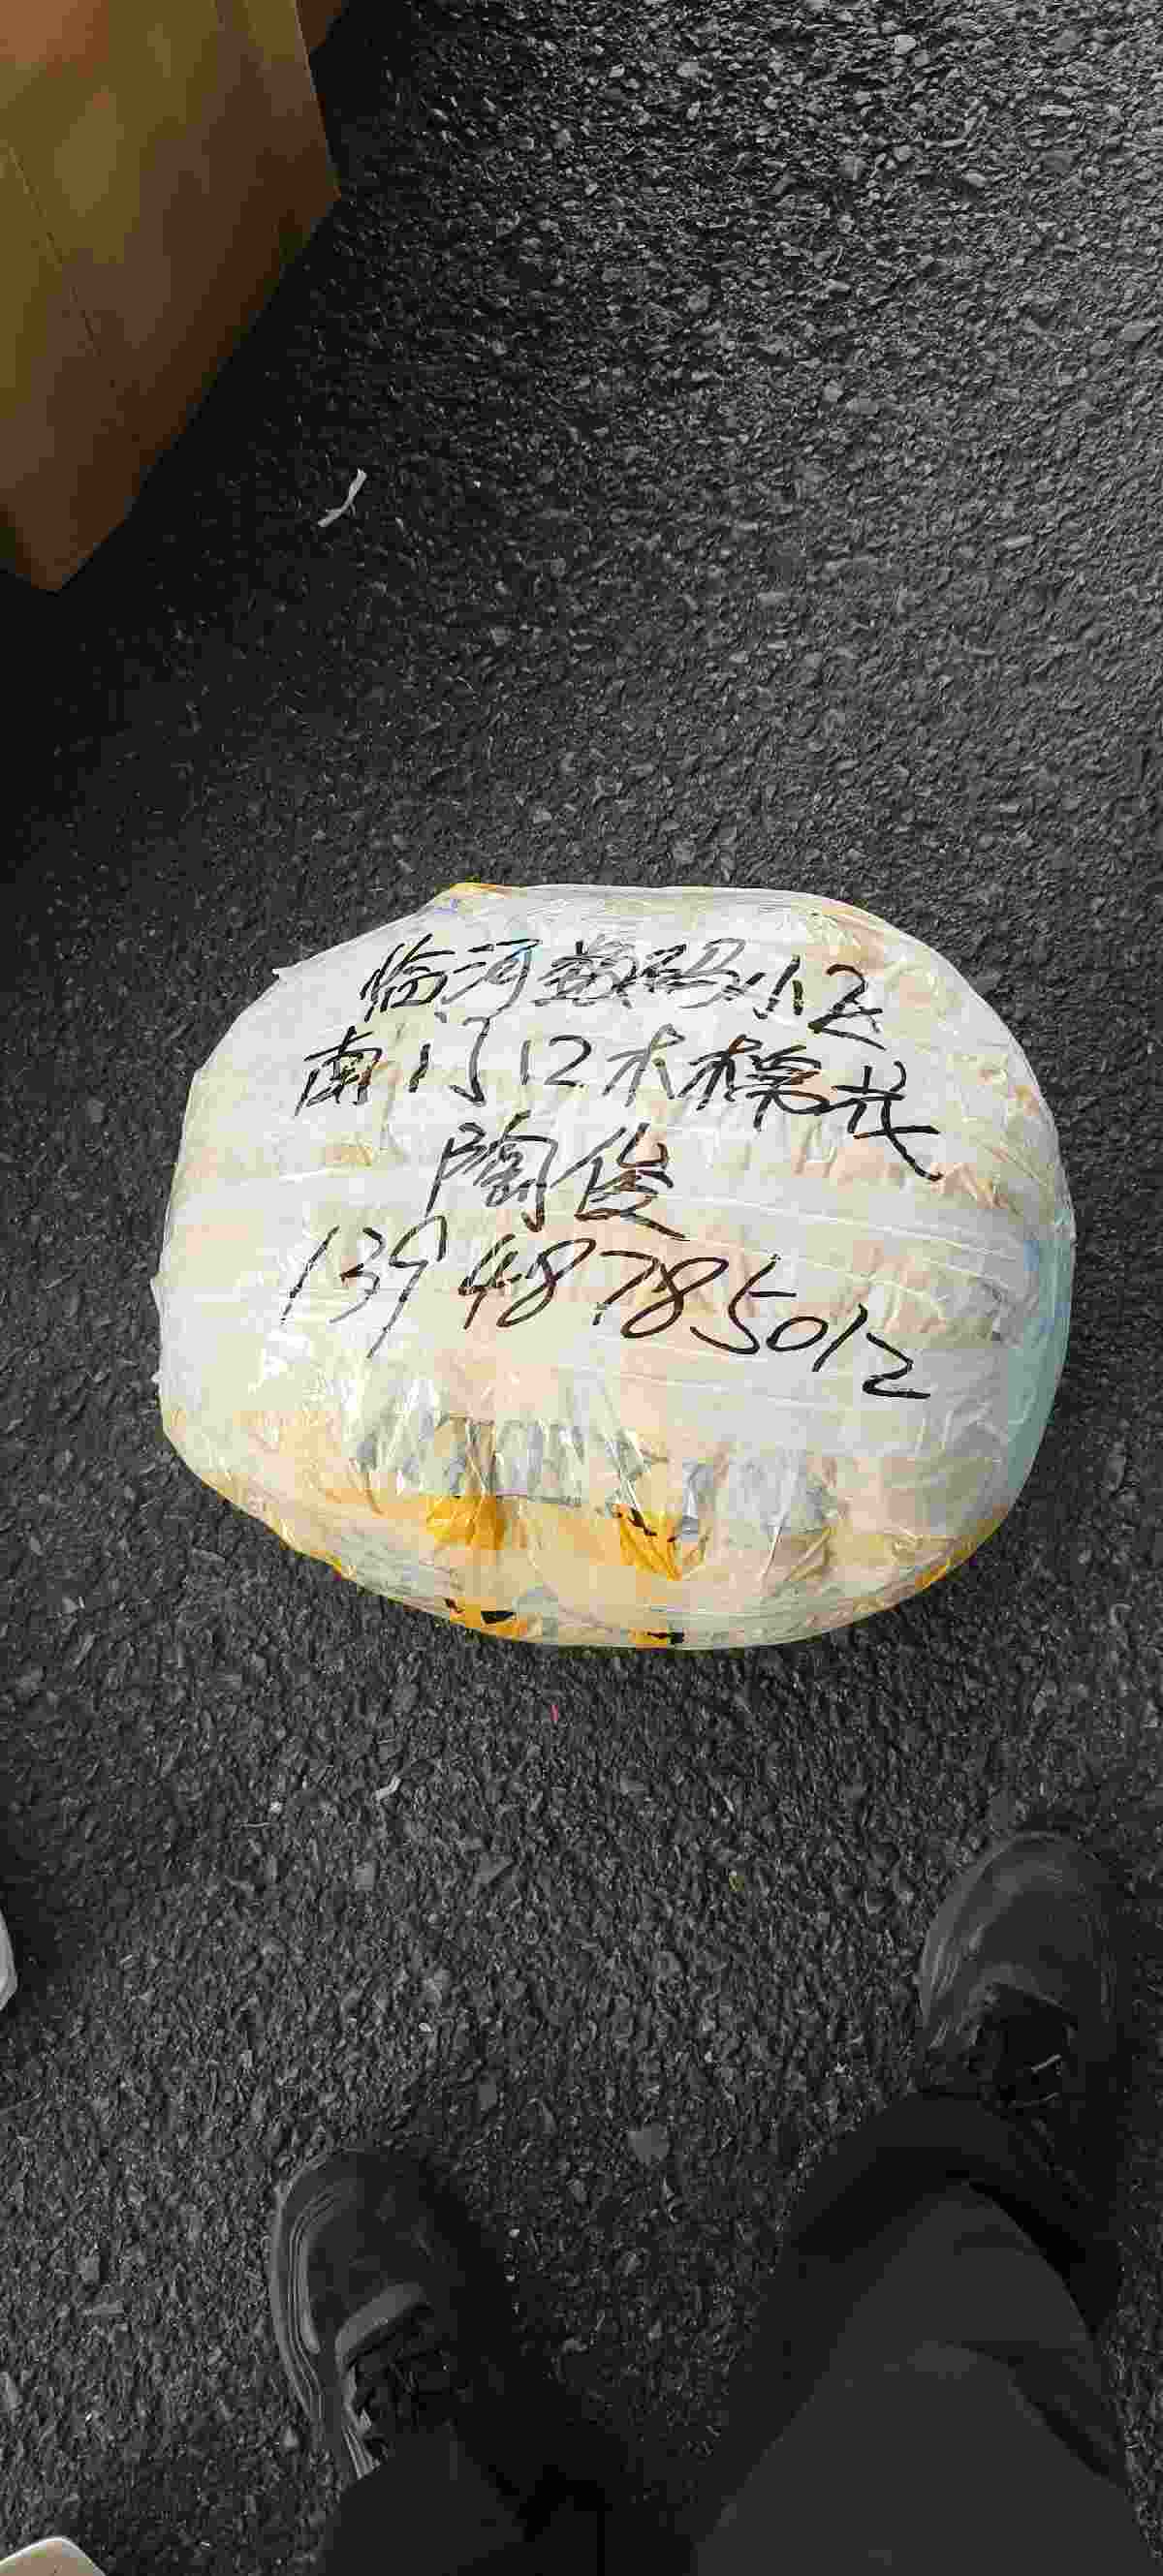 临河数码小区
南门口木槿花
陶俊
13948785012